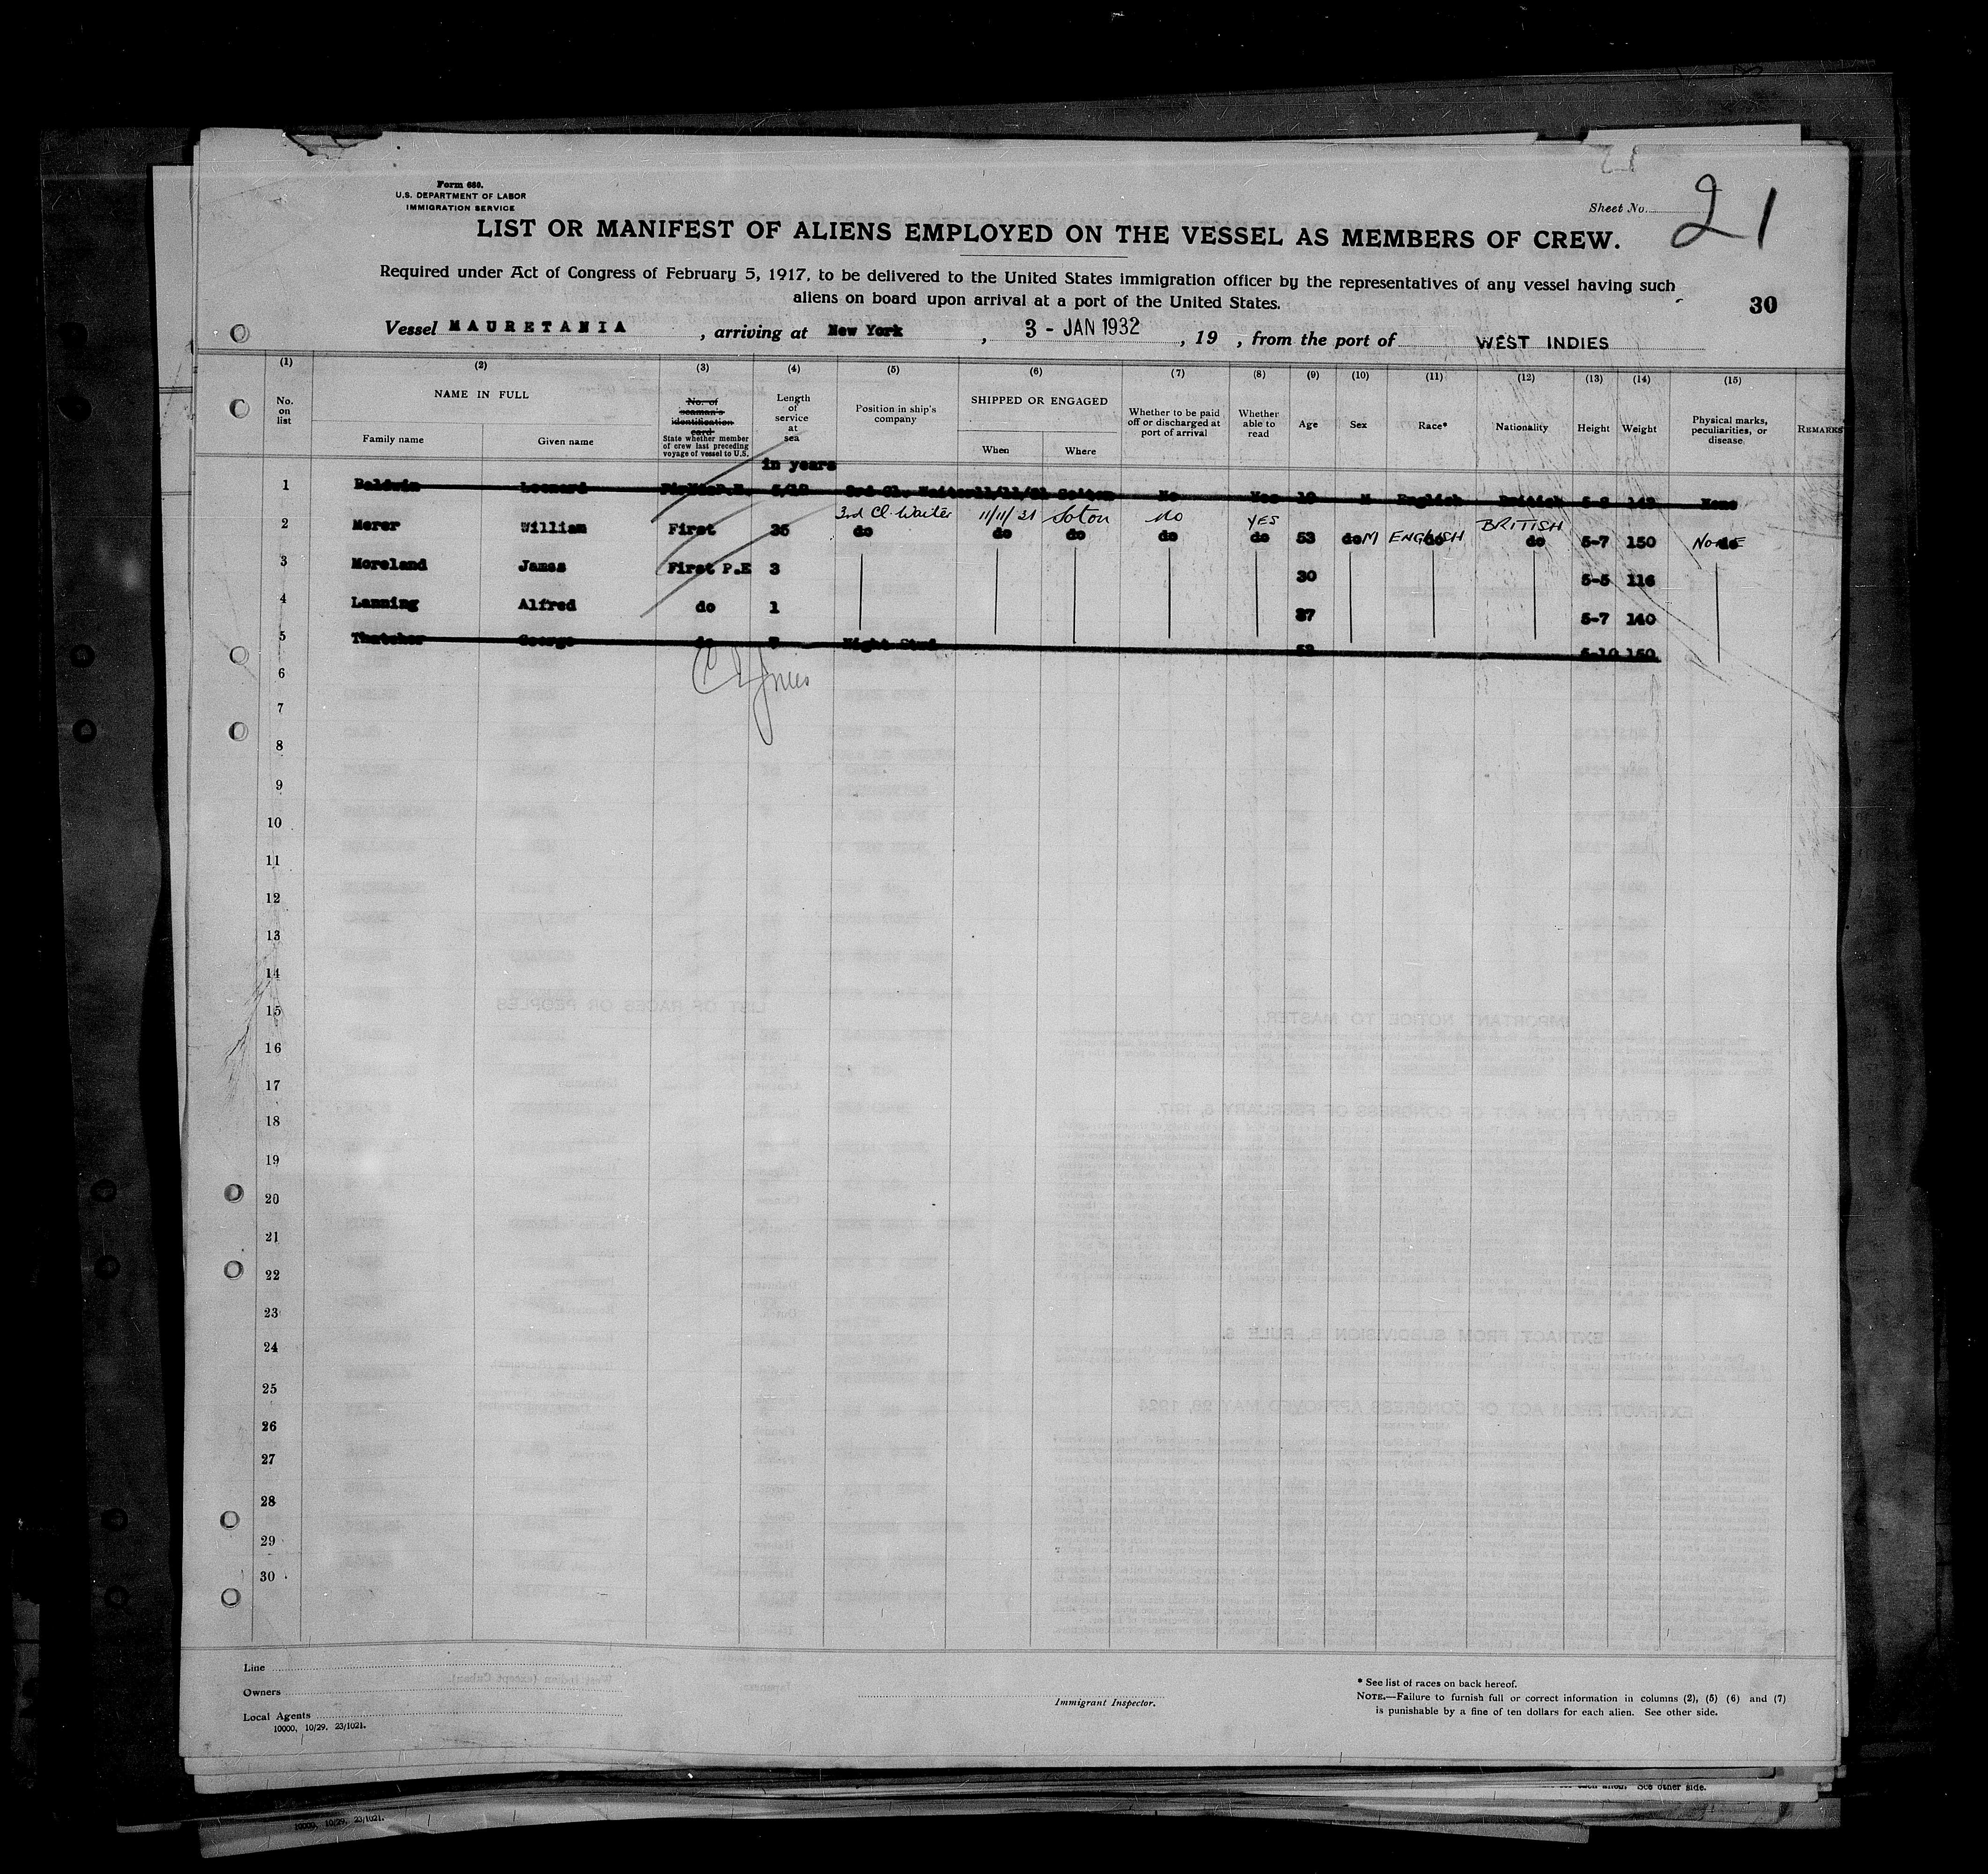 Form 689.
U.S. DEPARTMENT OF LABOR
IMMIGRATION SERVICE
Sheet No. 21
LIST OR MANIFEST OF ALIENS EMPLOYED ON THE VESSEL AS MEMBERS OF CREW.
Required under Act of Congress of February 5, 1917, to be delivered to the United States immigration officer by the representatives of any vessel having such
aliens on board upon arrival at a port of the United States.
30
Vessel MAURETANIA, arriving at New York, 3 - JAN 1932, 19 , from the port of WEST INDIES
(1) (2) (3) (4) (5) (6) (7) (8) (9) (10) (11) (12) (13) (14) (15)
No. on list
NAME IN FULL
Family name
Given name
No. of seaman's identification card
State whether member of crew last preceding voyage of vessel to U.S.
Length of service at sea
in years
Position in ship's company
SHIPPED OR ENGAGED
When
Where
Whether to be paid off or discharged at port of arrival
Whether able to read
Age
Sex
Race*
Nationality
Height
Weight
Physical marks, peculiarities, or disease.
REMARKS
1 Baldwin Leonard 3rd Cl. Waiter 11/11/31 So'ton No Yes 19 M English British None
3rd Cl. Waiter 11/11/31 Soton No YES M ENGLISH BRITISH NONE
2 Merer William First 35 do do do do do 53 do do do 5-7 150 do
3 Moreland James First P.E 3 30 5-5 116
4 Lanning Alfred do 1 37 5-7 140
5 Thatcher George do 7 Night Stwd 52 5-10 150
6
7
8
9
10
11
12
13
14
15
16
17
18
19
20
21
22
23
24
25
26
27
28
29
30
Line
Owners
Local Agents
10000, 10/29. 23/1021.
Immigrant Inspector.
* See list of races on back hereof.
NOTE.—Failure to furnish full or correct information in columns (2), (5) (6) and (7)
is punishable by a fine of ten dollars for each alien. See other side.
See other side.
10000, 10/29. 23/1021.